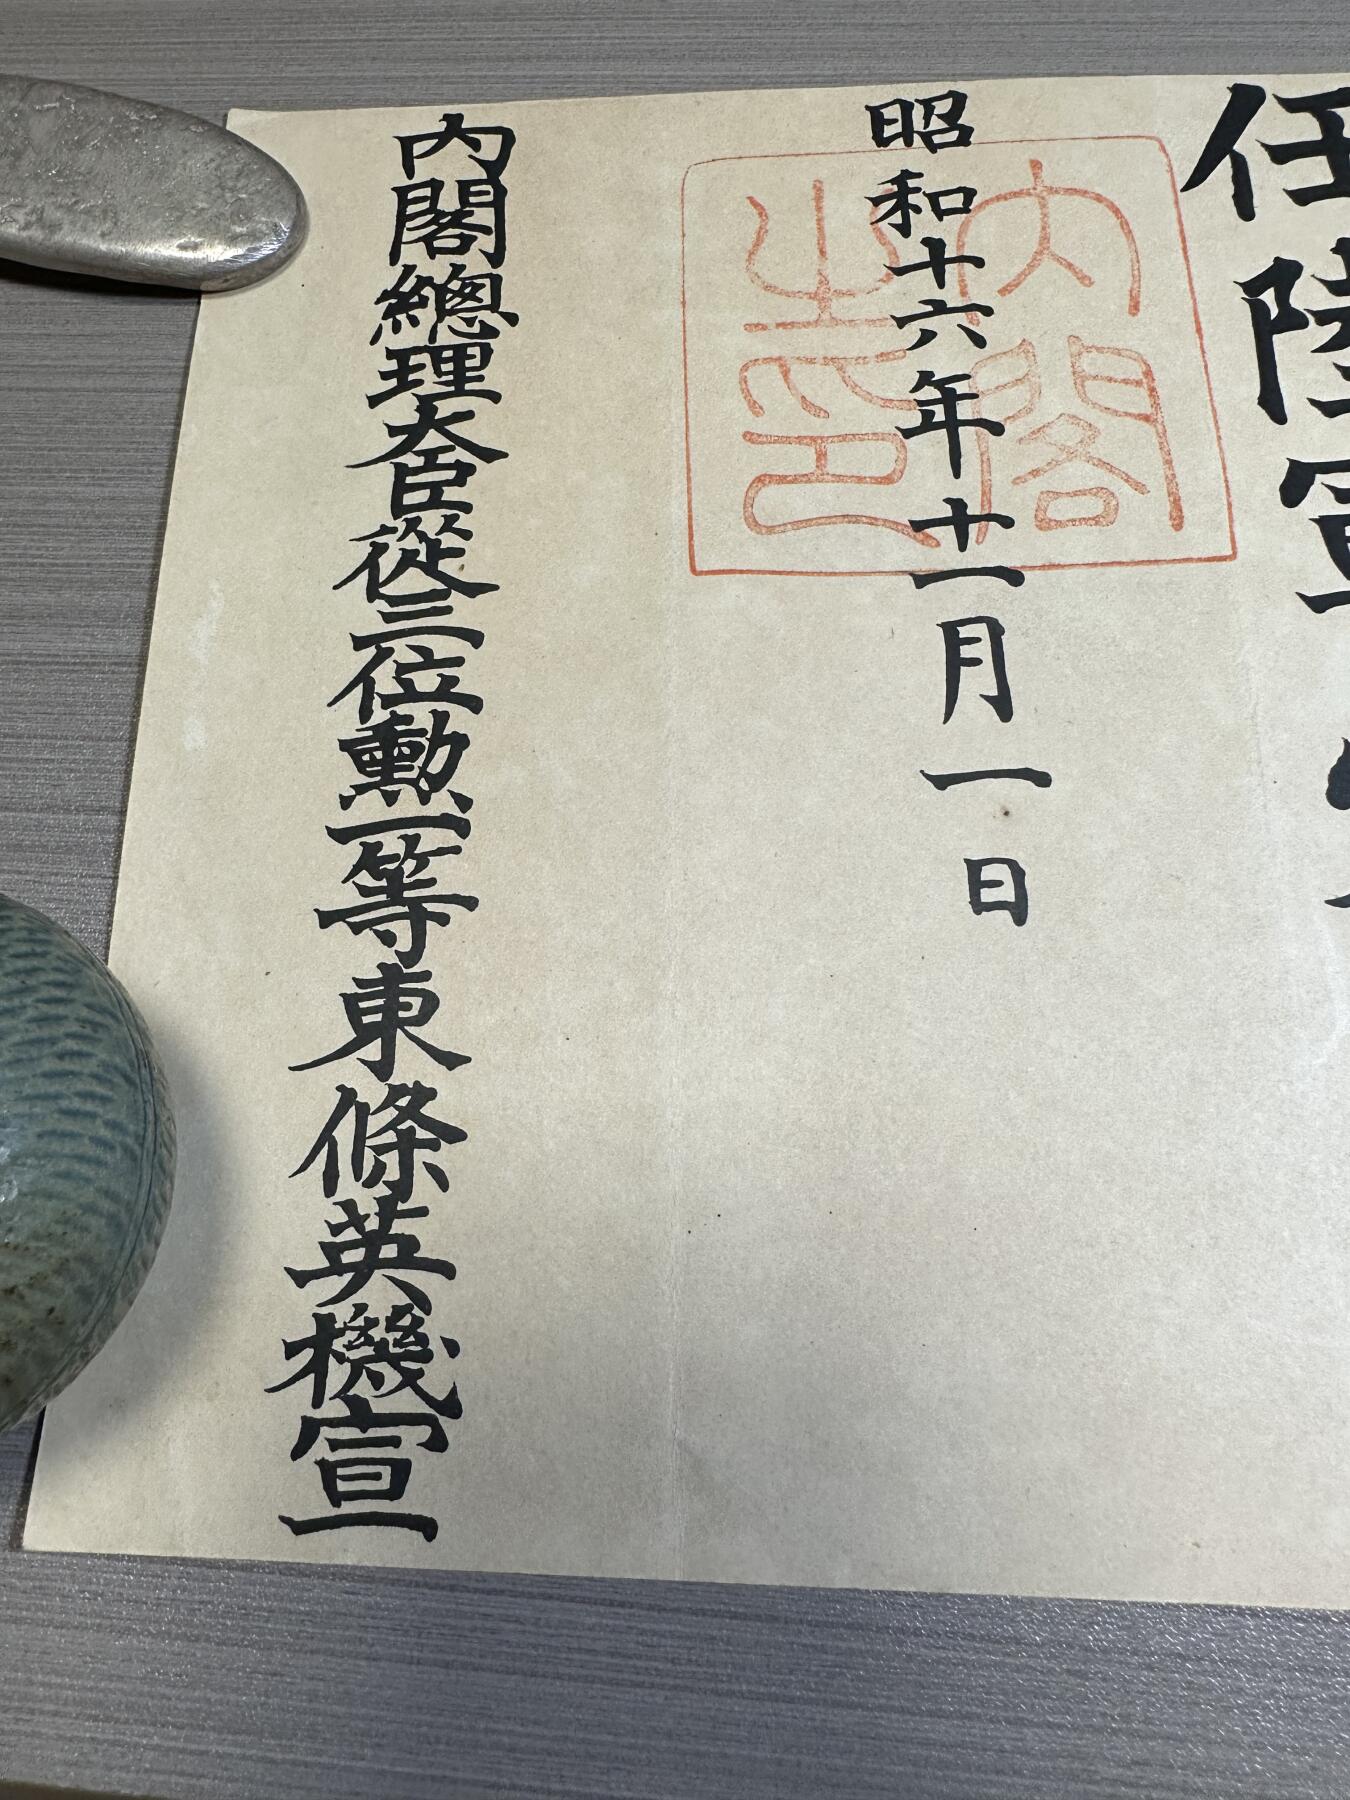 任陸軍
昭和十六年十一月一日
内閣之印
内閣總理大臣從三位勲一等東條英機宣